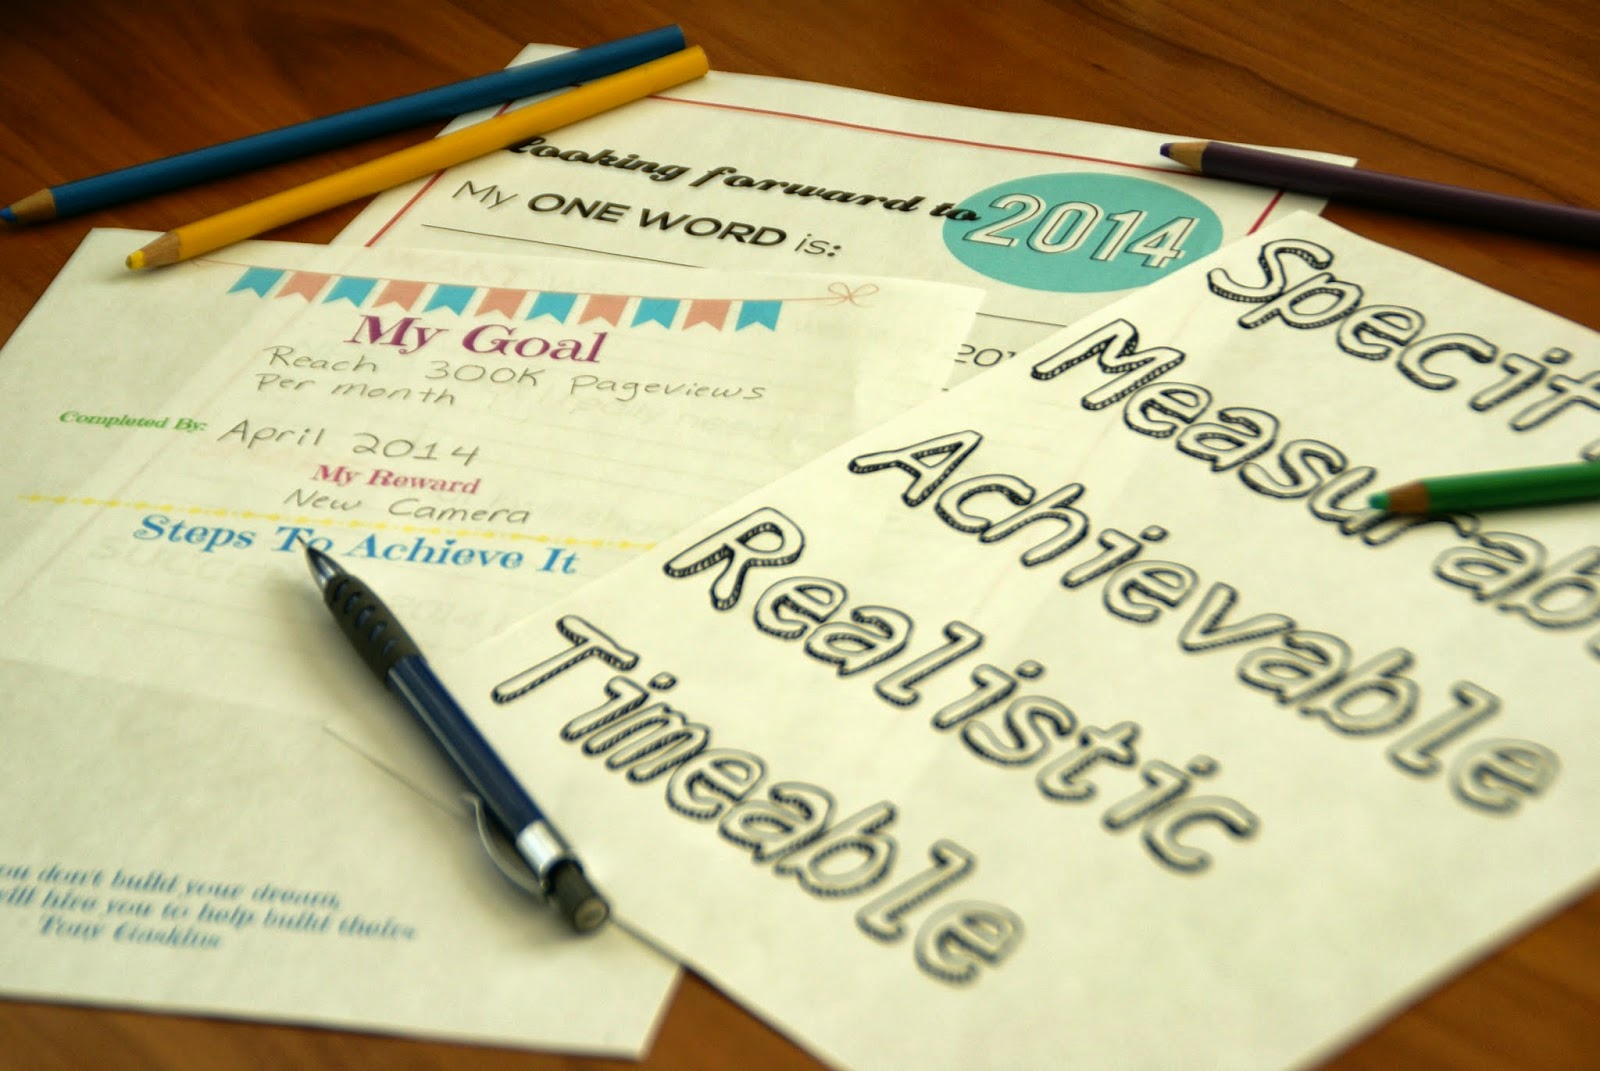 looking forward to 2014
My ONE WORD is:
My Goal
Reach 300K pageviews
Per month
Completed By: April 2014
My Reward
New Camera
Steps To Achieve It
don't build your dream,
hire you to help build theirs
Tony Gaskins
Specif
Measurab
Achievable
Realistic
Timeable